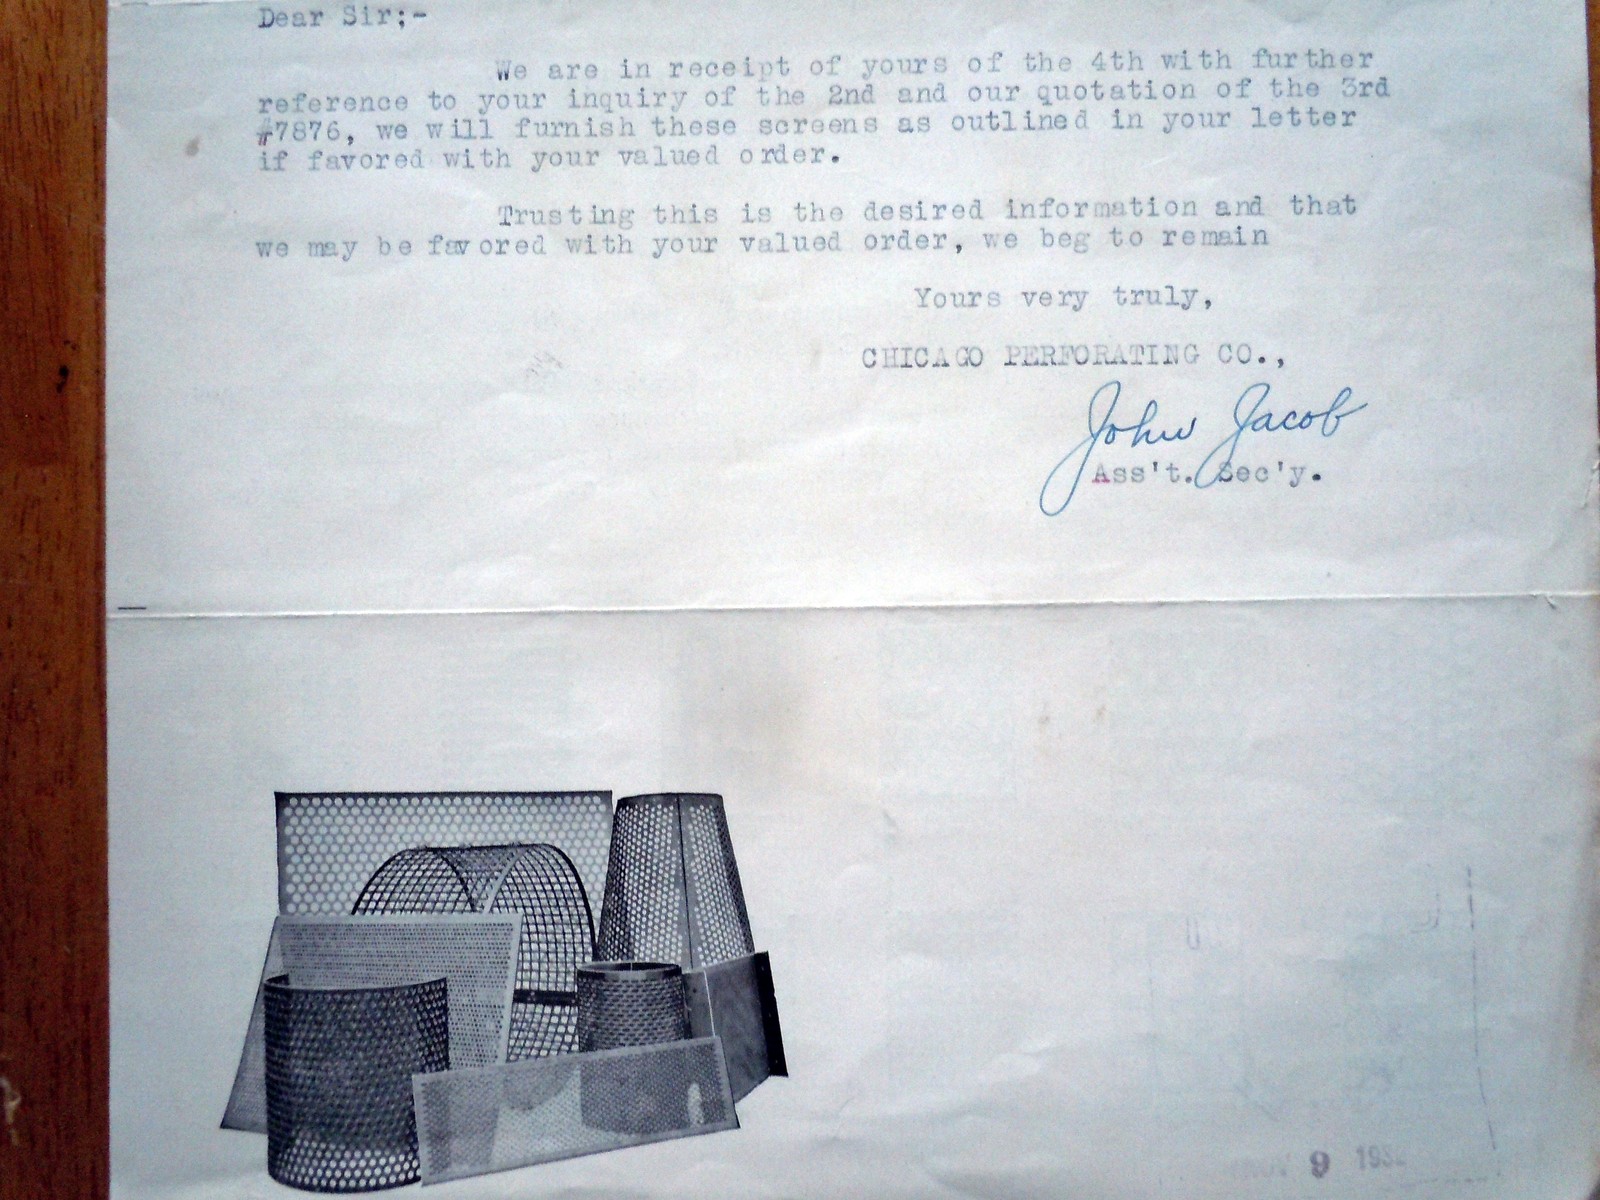 Dear Sir;-
We are in receipt of yours of the 4th with further
reference to your inquiry of the 2nd and our quotation of the 3rd
#7876, we will furnish these screens as outlined in your letter
if favored with your valued order.
Trusting this is the desired information and that
we may be favored with your valued order, we beg to remain
Yours very truly,
CHICAGO PERFORATING CO.,
John Jacob
Ass't. Sec'y.
9